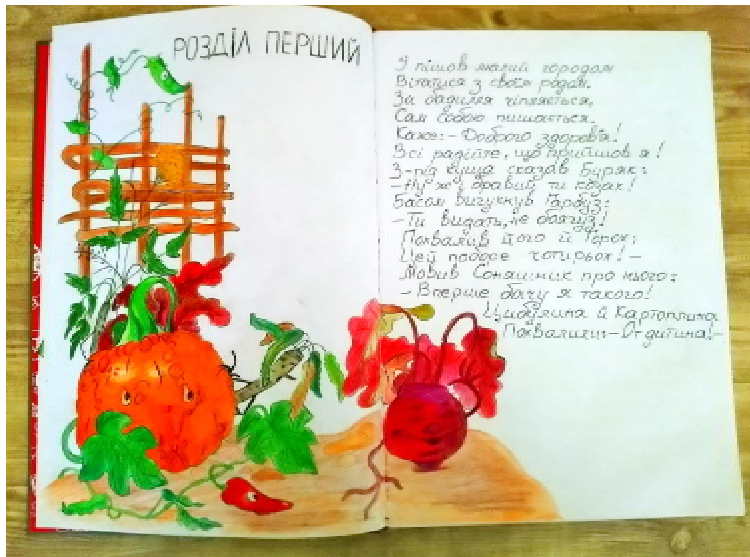 РОЗДІЛ ПЕРШИЙ
І пішов малий городом
Вітатися з своїм родом.
За бадилля чіпляється,
Сам собою пишається.
Каже:– Доброго здоров'я!
Всі радійте, що прийшов я!
З-під куща сказав Буряк:
– Ну ж і бравий ти козак!
Басом вигукнув Гарбуз:
– Ти видать, не боягуз!
Похвалив його й Горох:
Цей поборе чотирьох! –
Мовив Соняшник про нього:
– Вперше бачу я такого!
Цибулина й Картоплина
Похвалили:– От дитина!–